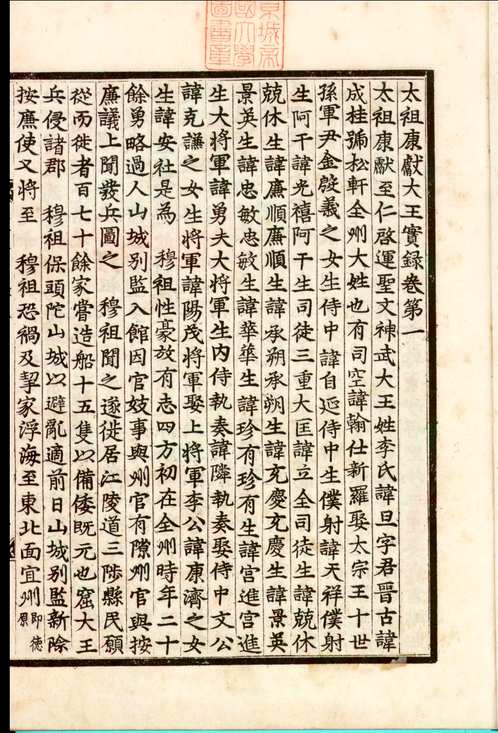 京城帝
國大學
圖書章
太祖康獻大王實録卷第一
太祖康獻至仁啓運聖文神武大王姓李氏諱旦字君晉古諱
成桂號松軒全州大姓也有司空諱翰仕新羅娶太宗王十世
孫軍尹金殷義之女生侍中諱自延侍中生僕射諱天祥僕射
生阿干諱光禧阿干生司徒三重大匡諱立全司徒生諱兢休
兢休生諱廉順廉順生諱承朔承朔生諱充慶充慶生諱景英
景英生諱忠敏忠敏生諱華華生諱珍有珍有生諱宮進宮進
生大將軍諱勇夫大將軍生内侍執奏諱隣執奏娶侍中文公
諱克謙之女生將軍諱陽茂將軍娶上將軍李公諱康濟之女
生諱安社是為 穆祖性豪放有志四方初在全州時年二十
餘勇略過人山城別監入館因官妓事與州官有隙州官與按
廉議上聞發兵圖之 穆祖聞之遂徙居江陵道三陟縣民願
從而徙者百七十餘家嘗造船十五隻以備倭旣元也窟大王
兵侵諸郡 穆祖保頭陀山城以避亂適前日山城別監新除
按廉使又將至 穆祖恐禍及挈家浮海至東北面宜州即德原